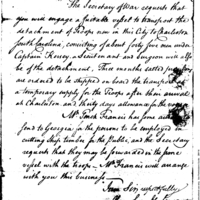 The Secretary of War requests that
you will engage a suitable vessel to transport the
detachment of Troops now in this City to Charleston
South Carolina, consisting of about forty five men under
Captain a Lieutenant and Surgeon will also
be of the detachment, Four months settled
are ordered to be shipped on board the transport as
a temporary supply for the Troops after their arrival
at Charleston and thirty days allowance for the voyage
Mr Francis has some
sent to Georgia for the persons to be employed in
cutting Ship timber for the Public, and the Secretary
requests that they may be forwarded in the same
vessel with the troops. Mr Francis will arrange
with you this business.
I am Sir, respectfully